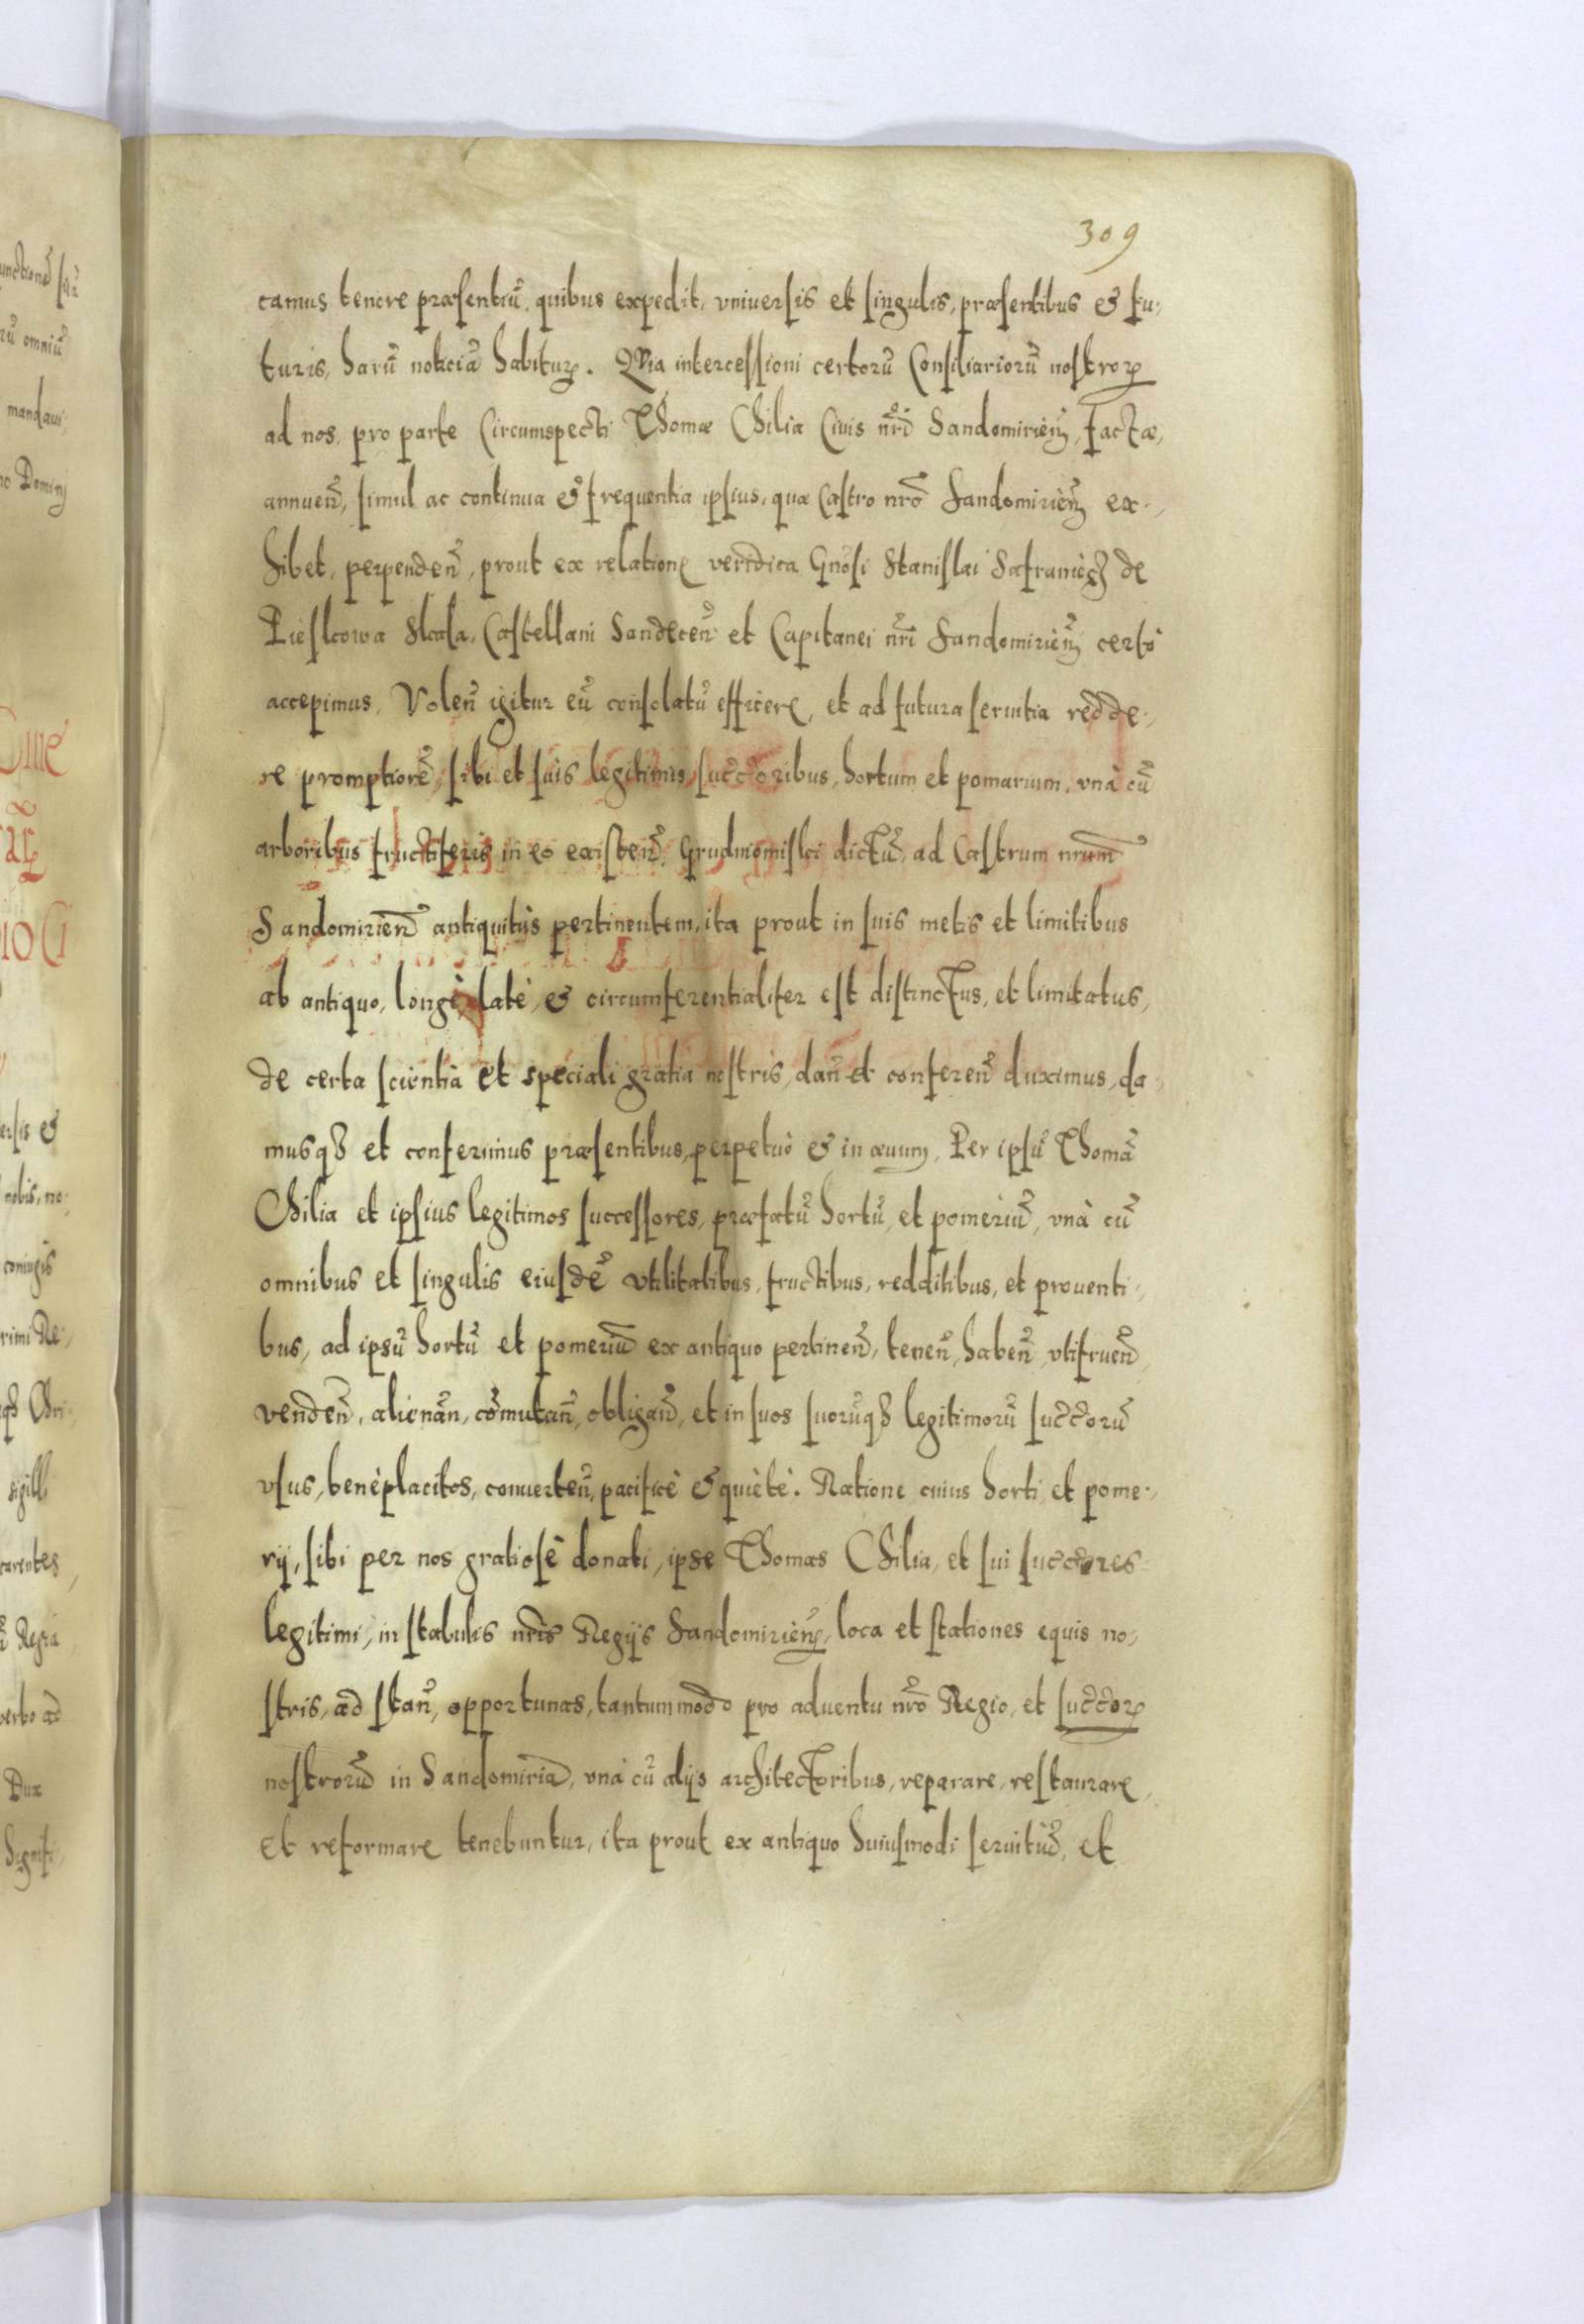 309
camus tenore præsentiū, quibus expedit, vniuersis et singulis, præsentibus & fu-
turis, harū noticiā habituꝝ. Quia intercessioni certorū Consiliariorū nostroꝝ
ad nos, pro parte Circumspecti Thomæ Chilia Ciuis nr̄i Sandomirieñ, factæ,
annueñ, simul ac continua & frequentia ipsius, quæ Castro nr̄o Sandomirieñ ex-
hibet, perpendeñ, prout ex relatione veridica Gnōsi Stanislai Safraniecz de
Pieskowa Skala, Castellani Sandeceñ et Capitanei nr̄i Sandomirieñ certò
accepimus, Voleñ igitur eū consolatū efficere, et ad futura seruitia redde-
re promptiorē, sibi et suis legitimis succ̄oribus, hortum et pomarium, vnà cū
arboribus fructiferis in eo existeñ, Grudniomiski dictū, ad Castrum nrum̄
Sandomirieñ antiquitùs pertinentem, ita prout in suis metis et limitibus
ab antiquo, longè, latè, & circumferentialiter est distinctus, et limitatus,
de certa scientia et speciali gratia nostris, dañ et confereñ duximus, da-
musqȝ et conferimus præsentibus, perpetuò & in æuum, Per ipsū Thomā
Chilia et ipsius legitimos successores, præfatū hortū, et pomeriū, vnà cū
omnibus et singulis eiusdē vtilitatibus, fructibus, redditibus, et prouenti-
bus, ad ipsū hortū et pomeriū ex antiquo pertineñ, teneñ, habeñ, vtifrueñ,
vendeñ, alienañ, cōmutañ, obligañ, et in suos suorūqȝ legitimorū succ̄orū
vsus, beneplacitos, conuerteñ, pacificè & quietè. Ratione cuius horti et pome-
rij, sibi per nos gratiosè donati, ipse Thomas Chilia, et sui succ̄ores
legitimi, in stabulis nr̄is Regijs Sandomirieñ, loca et stationes equis no-
stris, ad stañ, opportunas, tantummodo pro aduentu nr̄o Regio, et succ̄oꝝ
nostrorū in Sandomiria, vnà cū alijs architectoribus, reparare, restaurare,
et reformare tenebuntur, ita prout ex antiquo huiusmodi seruitiū, et